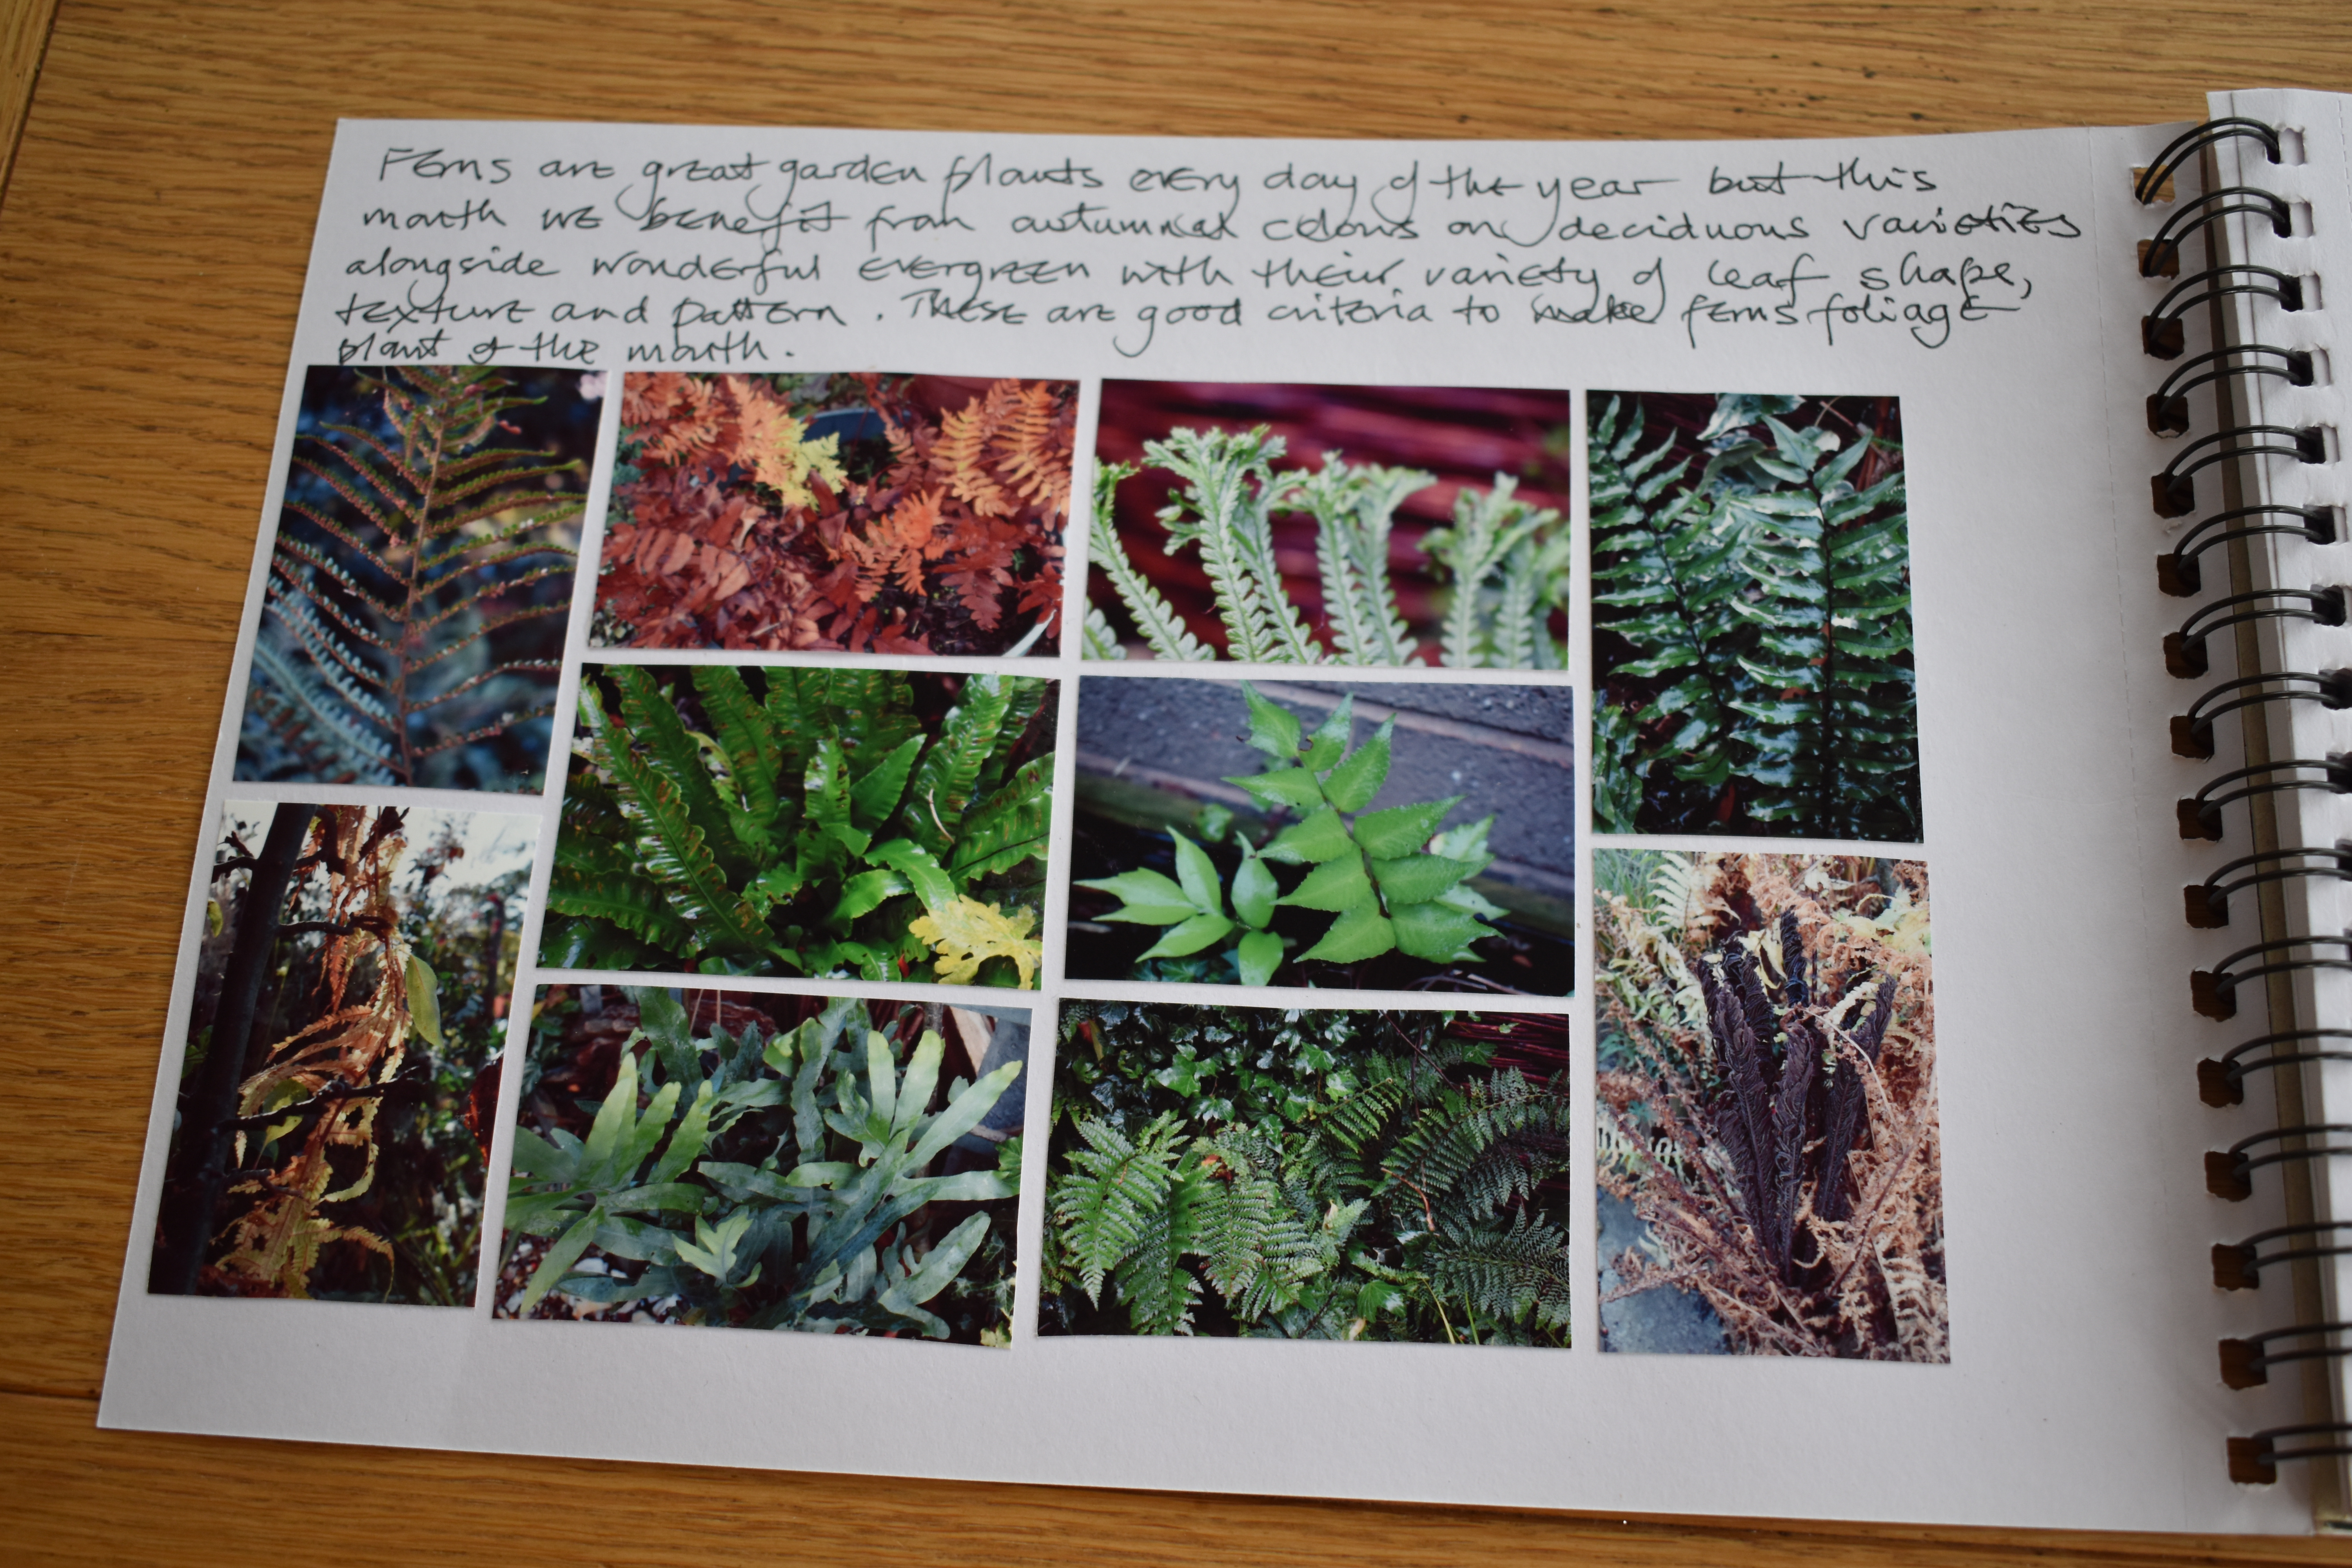 Ferns are great garden plants every day of the year but this
month we benefit from autumnal colours on deciduous varieties
alongside wonderful evergreen with their variety of leaf shape,
texture and pattern. These are good criteria to make ferns foliage
plant of the month.